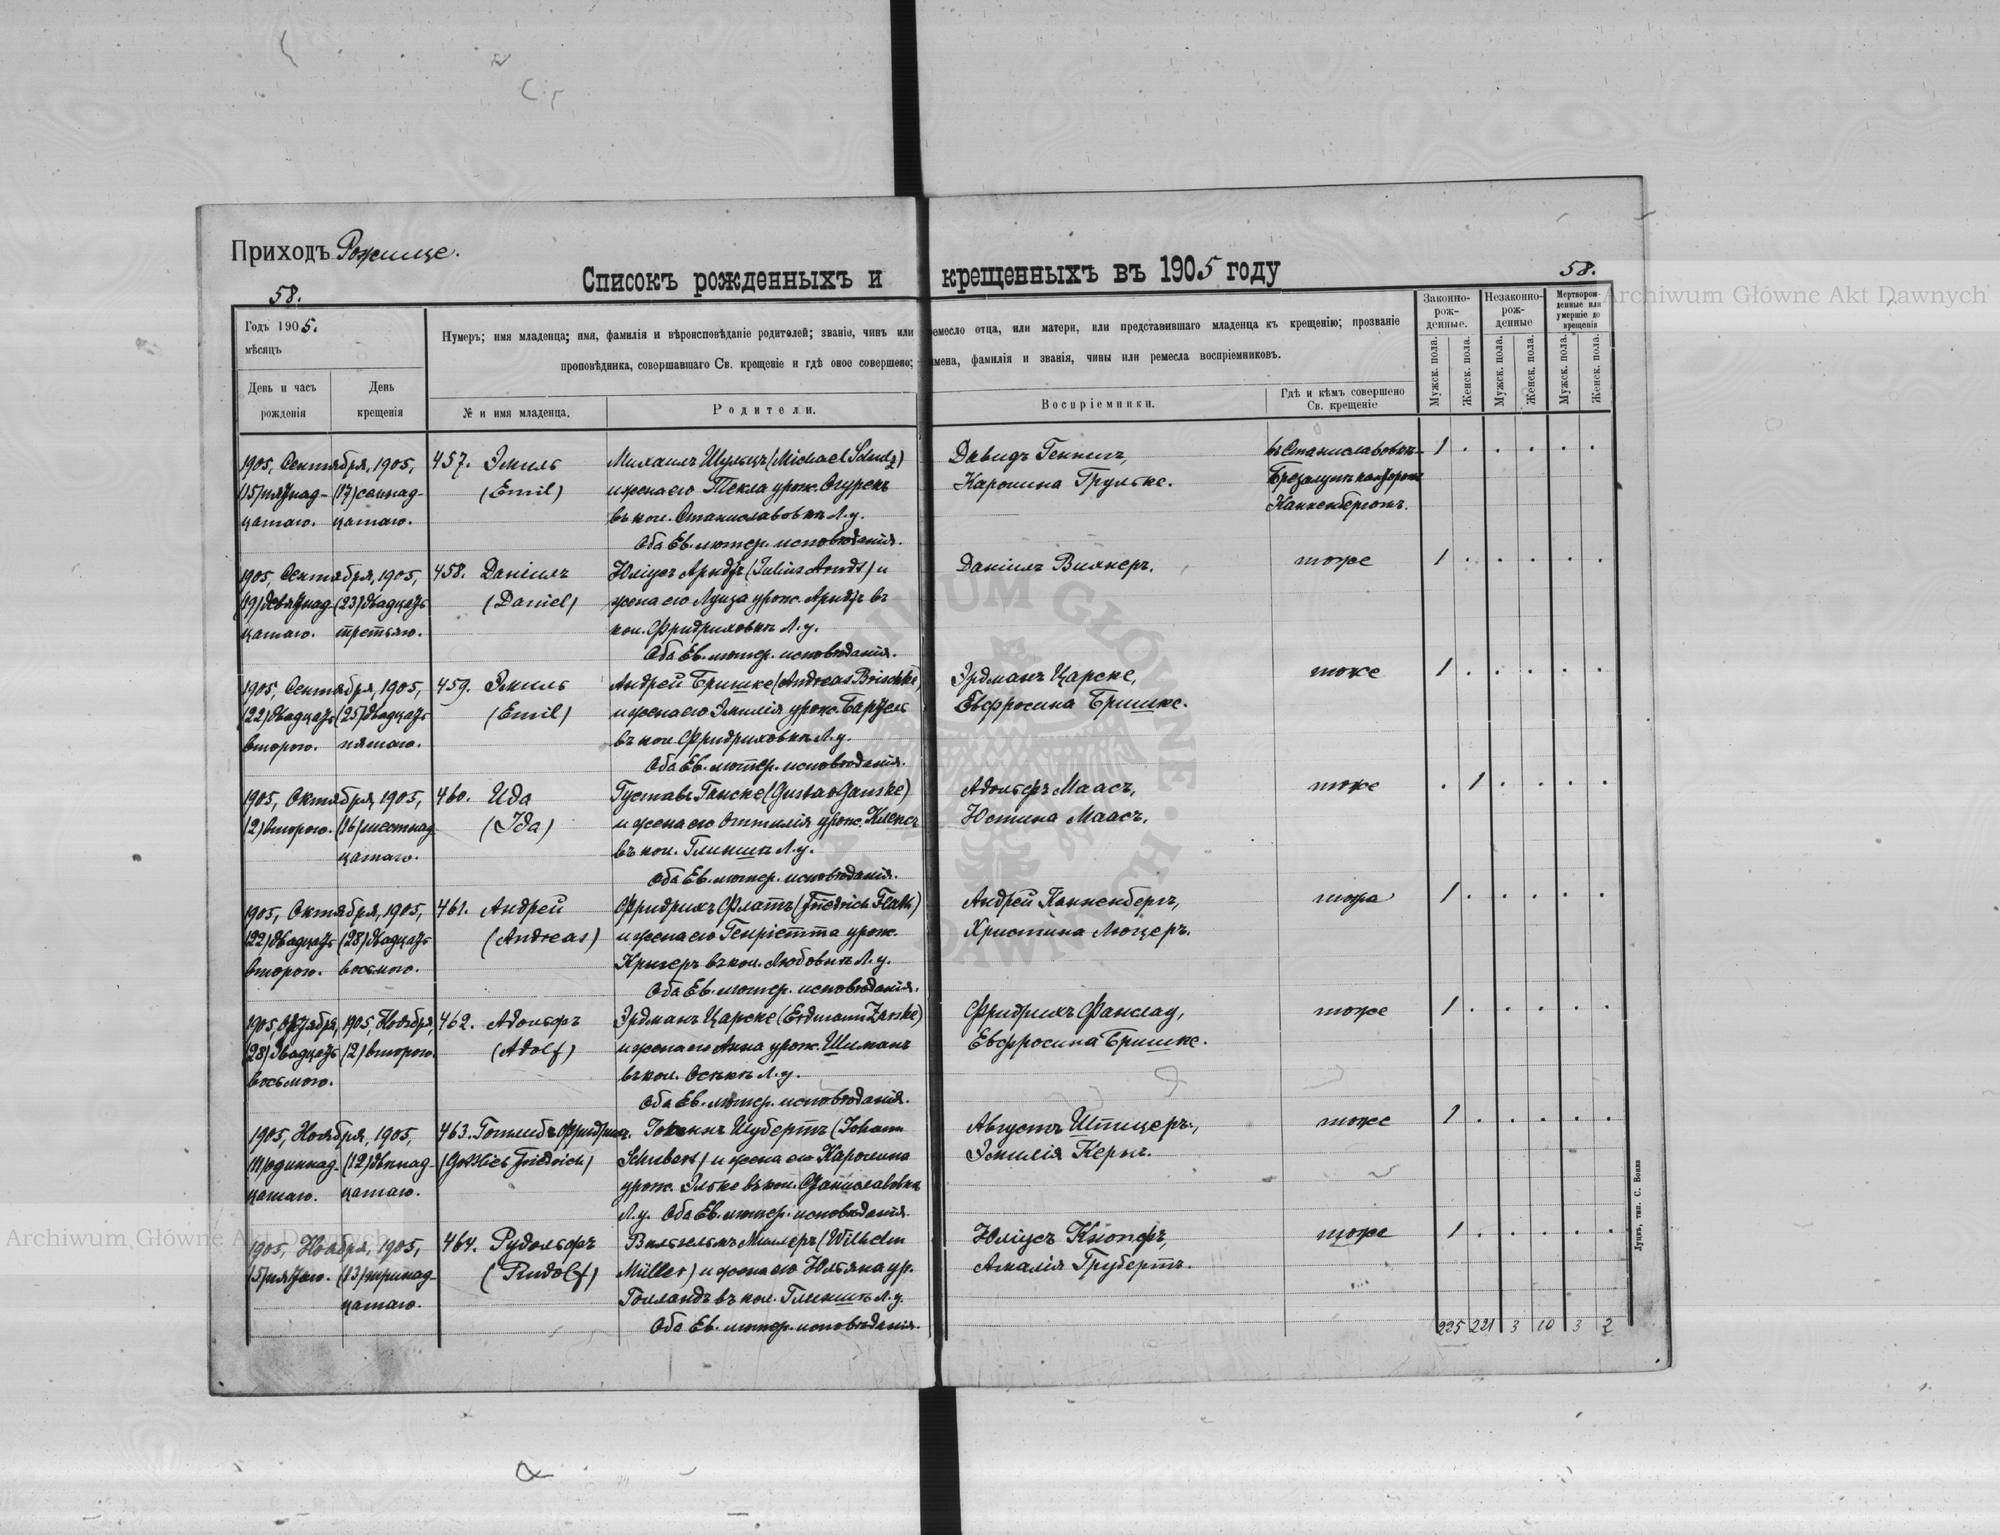 Приходъ Рожище.
Списокъ рожденныхъ и крещенныхъ въ 1905 году
58.
58.
Годъ 1905.
мѣсяцъ
День и часъ рожденія
День крещенія
Нумеръ; имя младенца; имя, фамилія и вѣроисповѣданіе родителей; званіе, чинъ или ремесло отца, или матери, или представившаго младенца къ крещенію; прозваніе
проповѣдника, совершавшаго Св. крещеніе и гдѣ оное совершено; имена, фамилія и званія, чины или ремесла воспріемниковъ.
№ и имя младенца.
Родители.
Воспріемники.
Гдѣ и кѣмъ совершено Св. крещеніе
Законно-рож-денные.
Незаконно-рож-денные
Мертворож-денные или умершіе до крещенія
Мужск. пола.
Женск. пола.
Мужск. пола.
Женск. пола.
Мужск. пола.
Женск. пола.
1905, Сентября, 1905, 457. Эмиль Михаилъ Шульцъ (Michael Schulz) Давидъ Геннигъ, въ Станиславовкѣ 1 . . . . .
(15) пятнад- (17) семнад- (Emil) и жена его Текла урож. Огурекъ Каролина Грульке.
цатаго. цатаго. въ кол. Станиславовкѣ Л. у. Канненбергомъ.
Оба Ев. лютер. исповѣданія.
1905, Сентября, 1905, 458. Даніилъ Юліусъ Арндтъ (Julius Arndt) и Даніилъ Вилнеръ. тоже 1 . . . . .
(19) девятнад- (23) двадцать (Daniel) жена его Луиза урож. Арндтъ въ
цатаго. третьяго. кол. Фридриховкѣ Л. у.
Оба Ев. лютер. исповѣданія.
1905, Сентября, 1905, 459. Эмиль Андрей Бришке (Andreas Brischke) Эрдманъ Царске, тоже 1 . . . . .
(22) двадцать (25) двадцать (Emil) и жена его Эмилія урож. Бартель Евфросина Бришке.
второго. пятаго. въ кол. Фридриховкѣ Л. у.
Оба Ев. лютер. исповѣданія.
1905, Октября, 1905, 460. Ида Густавъ Ганске (Gustav Ganske) Адольфъ Маасъ, тоже . 1 . . . .
(2) второго. (16) шестнад (Ida) и жена его Оттилія урож. Клемъ Юстина Маасъ.
цатаго. въ кол. Глинищѣ Л. у.
Оба Ев. лютер. исповѣданія.
1905, Октября, 1905, 461. Андрей Фридрихъ Флатъ (Friedrich Flath) Андрей Канненбергъ, тоже 1 . . . . .
(22) двадцать (28) двадцать (Andreas) и жена его Генріетта урож. Христина Люцеръ.
второго. восьмого. Кригеръ въ кол. Любовкѣ Л. у.
Оба Ев. лютер. исповѣданія.
1905, Октября, 1905, Ноября, 462. Адольфъ Эрдманъ Царске (Erdmann Zarske) Фридрихъ Фанслау, тоже 1 . . . . .
(28) двадцать (2) второго. (Adolf) и жена его Анна урож. Шиманъ Евфросина Бришке.
восьмого. въ кол. Осѣкъ Л. у.
Оба Ев. лютер. исповѣданія.
1905, Ноября, 1905, 463. Готлибъ Фридрихъ. Іоганнъ Шубертъ (Johann Августъ Шпицеръ, тоже 1 . . . . .
(11) одиннад- (12) двѣнад- (Gottlieb Friedrich) Schubert) и жена его Каролина Эмилія Кернъ.
цатаго. цатаго. урож. Эльке въ кол. Станиславовкѣ
Л. у. Оба Ев. лютер. исповѣданія.
1905, Ноября, 1905, 464. Рудольфъ Вильгельмъ Миллеръ (Wilhelm Юліусъ Кнопфъ, тоже 1 . . . . .
(5) пятаго. (13) тринад- (Rudolf) Müller) и жена его Юльяна ур. Амалія Грубертъ.
цатаго. Голландъ въ кол. Глинищѣ Л. у.
Оба Ев. лютер. исповѣданія.
225 221 3 10 3 2
Луцкъ, тип. С. Бокка
Archiwum Główne Akt Dawnych
Archiwum Główne Akt Dawnych
ARCHIWUM GŁÓWNE AKT DAWNYCH